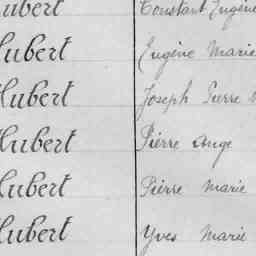 Hubert Constant Eugène
Hubert Eugène Marie
Hubert Joseph Pierre
Hubert Pierre Ange
Hubert Pierre Marie
Hubert Yves Marie